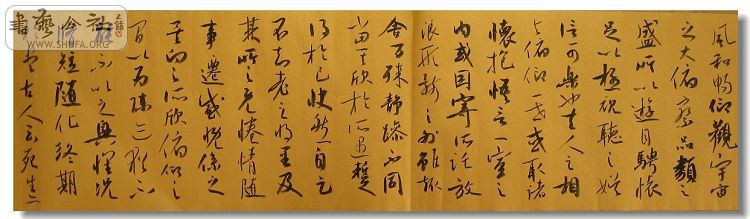 風和暢仰觀宇宙
之大俯察品類之
盛所以遊目騁懷
足以極視聽之娛
信可樂也夫人之相
與俯仰一世或取諸
懷抱悟言一室之
內或因寄所託放
浪形骸之外雖趣
舍萬殊靜躁不同
當其欣於所遇暫
得於己快然自足
不知老之將至及
其所之既倦情隨
事遷感慨係之
矣向之所欣俯仰之
間以為陳跡猶不
能不以之興懷況
脩短隨化終期
於盡古人云死生
書藝公社
WWW.SHUFA.ORG